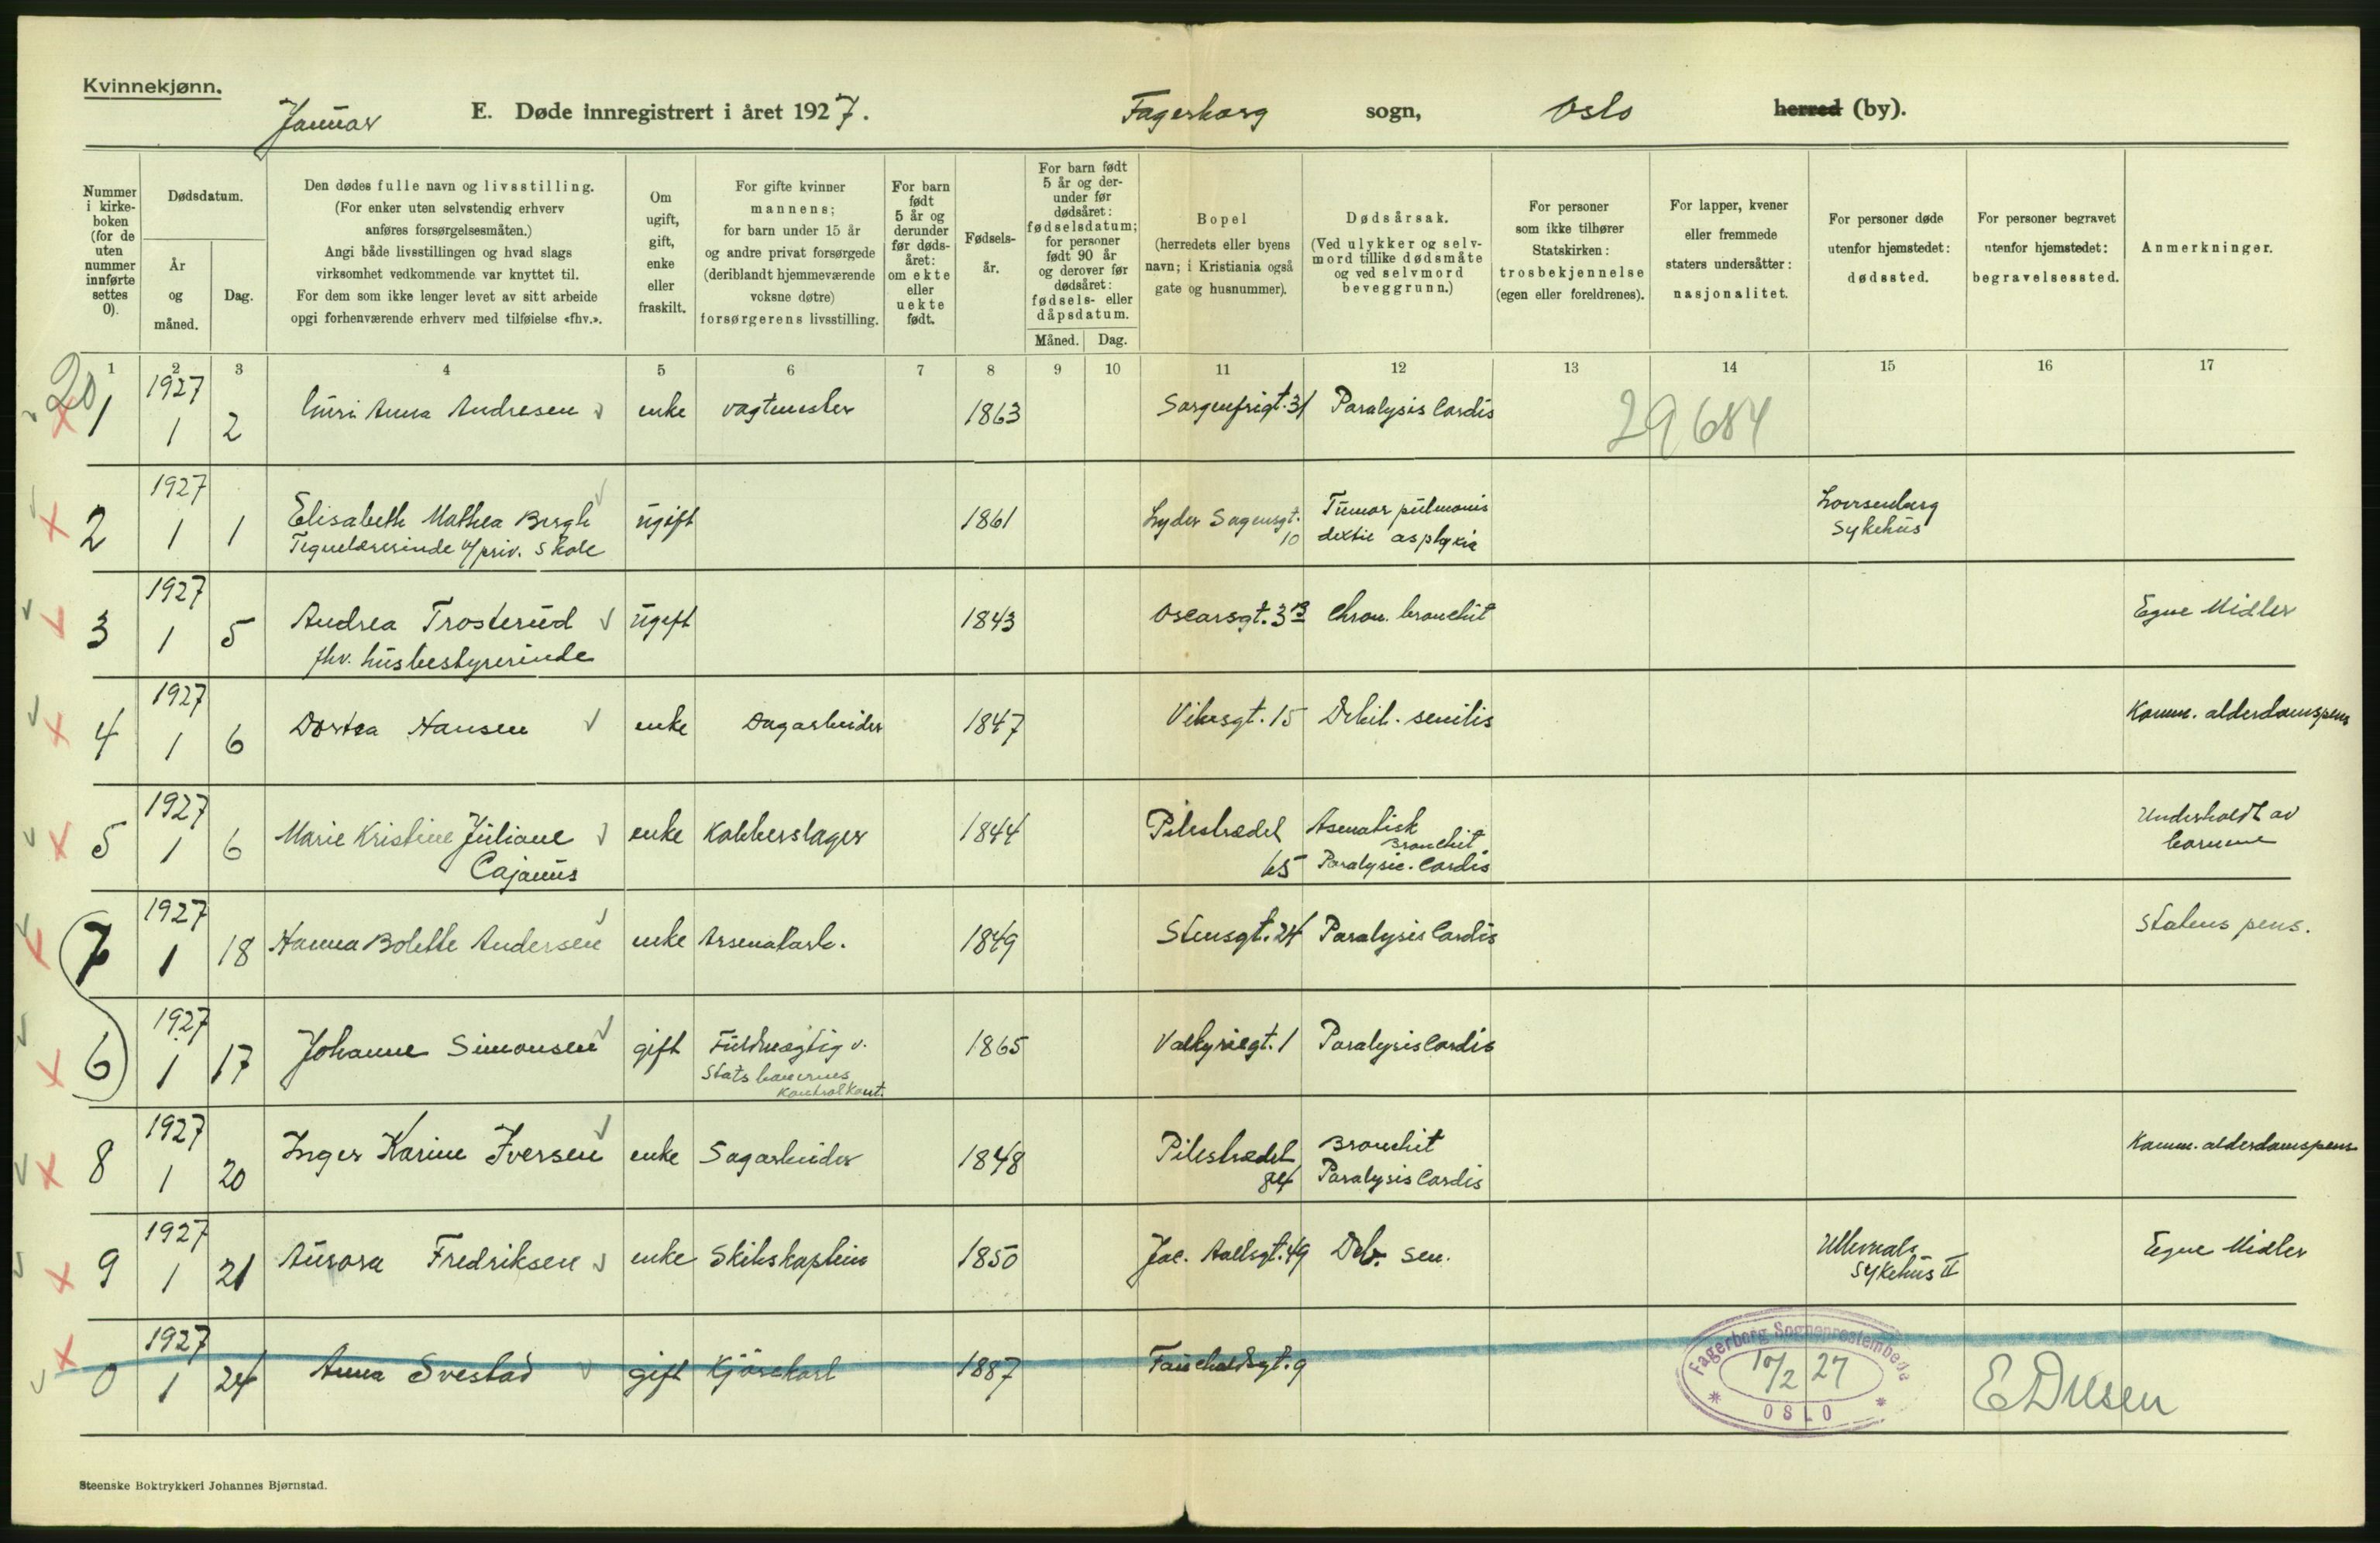 Kvinnekjønn.
Januar E. Døde innregistrert i året 1927. Fagerborg sogn, Oslo herred (by).
Nummer i kirke- boken (for de uten nummer innførte settes 0).
Dødsdatum.
År og måned.
Dag.
Den dødes fulle navn og livsstilling.
(For enker uten selvstendig erhverv
anføres forsørgelsesmåten.)
Angi både livsstillingen og hvad slags
virksomhet vedkommende var knyttet til.
For dem som ikke lenger levet av sitt arbeide
opgi forhenværende erhverv med tilføielse «fhv.».
Om ugift, gift, enke eller fraskilt.
For gifte kvinner
mannens;
for barn under 15 år
og andre privat forsørgede
(deriblandt hjemmeværende
voksne døtre)
forsørgerens livsstilling.
For barn født 5 år og derunder før døds- året: om ekte eller uekte født.
Fødsels- år.
For barn født 5 år og der- under før dødsåret: fødselsdatum; for personer født 90 år og derover før dødsåret: fødsels- eller dåpsdatum.
Måned. Dag.
Bopel
(herredets eller byens
navn; i Kristiania også
gate og husnummer).
Dødsårsak.
(Ved ulykker og selv-
mord tillike dødsmåte
og ved selvmord
beveggrunn.)
For personer
som ikke tilhører
Statskirken:
trosbekjennelse
(egen eller foreldrenes).
For lapper, kvener
eller fremmede
staters undersåtter:
nasjonalitet.
For personer døde
utenfor hjemstedet:
dødssted.
For personer begravet
utenfor hjemstedet:
begravelsessted.
Anmerkninger.
1 2 3 4 5 6 7 8 9 10 11 12 13 14 15 16 17
20
1 1927 1 2 Anna Andresen enke vagtmester 1863 Sorgenfrigt. 31 Paralysis Cordis
29684
2 1927 1 1 Elisabeth Mathea Bergh ugift 1861 Lyder Sagensgt. 10 Tumor pulmonis
Tegnelærerinde v/ priv. Skole asphyxia
Lovisenberg
Sykehus
3 1927 1 5 Andrea Trosterud ugift 1843 Oscarsgt. 3B Chron. bronchit Egne Midler
fhv. husbestyrerinde
4 1927 1 6 Dortea Hansen enke Dagarbeider 1847 Vibesgt. 15 Debil. senilis Komm. alderdomspens
5 1927 1 6 Marie Kristine Juliane enke Kobberslager 1844 Pilestrædet 65
Cajanus
Bronchit
Paralysis Cordis
Underholdt av
barnene
7 1927 1 18 Hanna Bolette Andersen enke Arsenalarb. 1849 Stensgt. 24 Paralysis Cordis Statens pens.
6 1927 1 17 Johanne Simonsen gift Fuldmægtig v. 1865 Valkyriegt. 1 Paralysis Cordis
Statsbanernes
Kontrolkont.
8 1927 1 20 Inger Karine Iversen enke Sagarbeider 1848 Pilestrædet 84 Bronchit
Paralysis Cordis
Komm. alderdomspens
9 1927 1 21 Aurora Fredriksen enke Skibskaptein 1850 Jac. Aallsgt. 49 Deb. sen. Ullevaals
Sykehus II
Egne Midler
0 1927 1 24 Anna Svestad gift Kjørekarl 1887 Fauchaldsgt. 9
Fagerborg Sogneprestembede
10/2 27
OSLO
Steenske Boktrykkeri Johannes Bjørnstad.